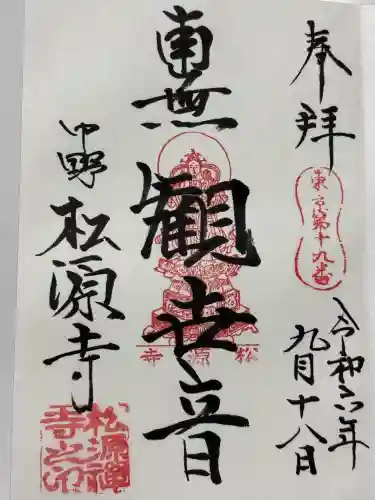 奉拝
東京第十九番
令和六年
九月十八日
南無
観世音
松源寺
中野
松源寺
松源禅寺之印